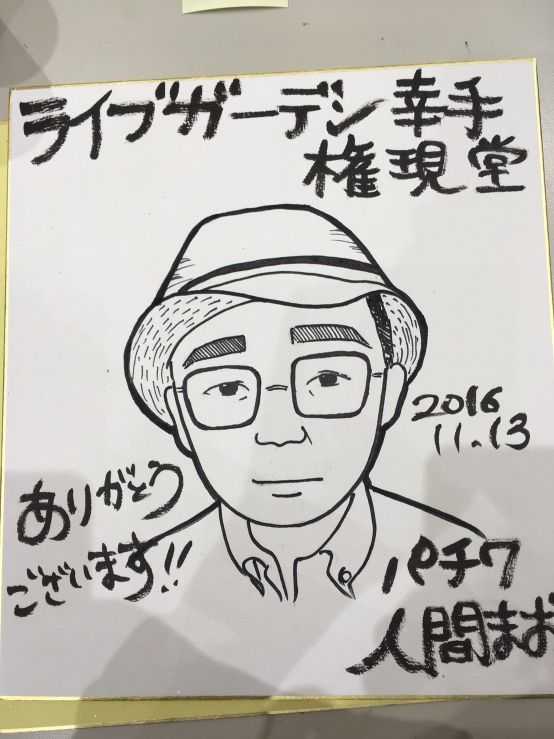 ライブガーデン 幸手
権現堂
2016
11.13
ありがとう
ございます!!
パチワ
人間まお